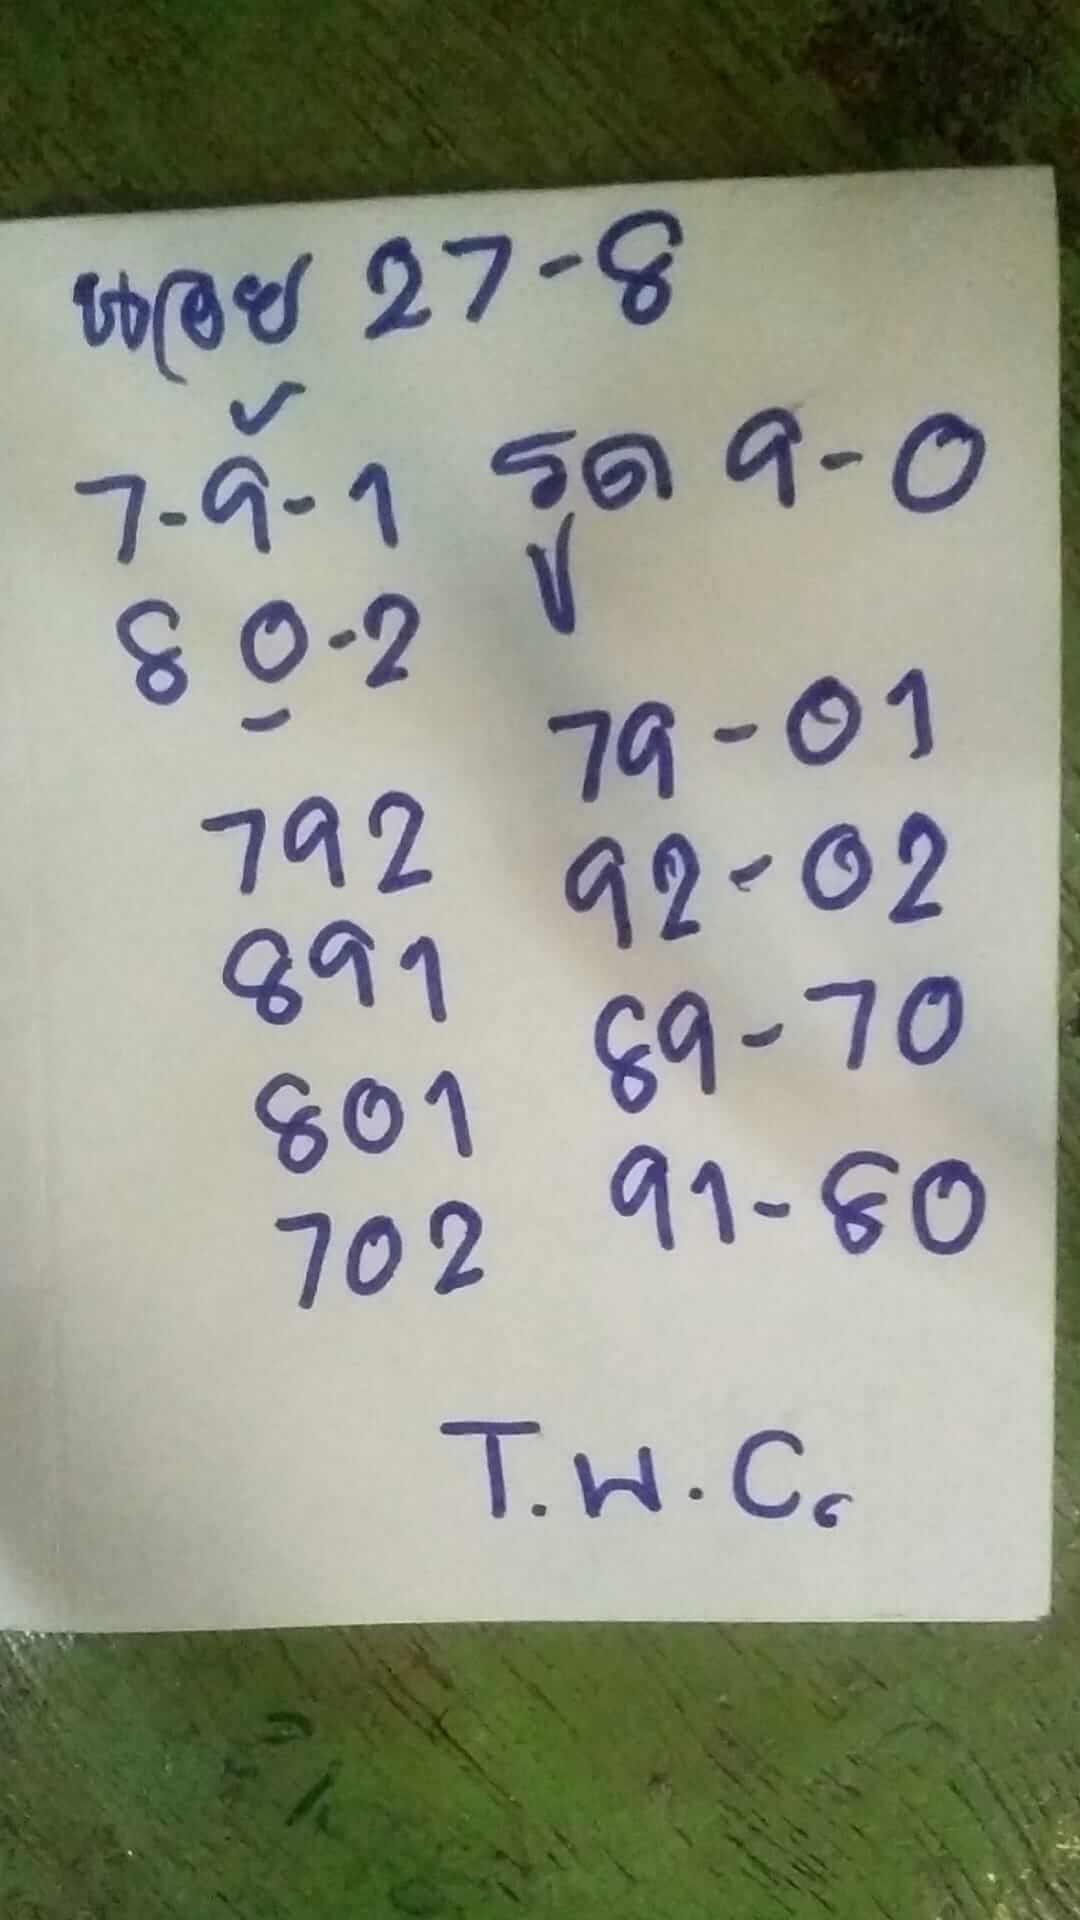 หลอย 27-8
7-9-1 รูด 9-0
8 0-2
79-01
792
92-02
891
89-70
801
91-80
702
T.W.C.